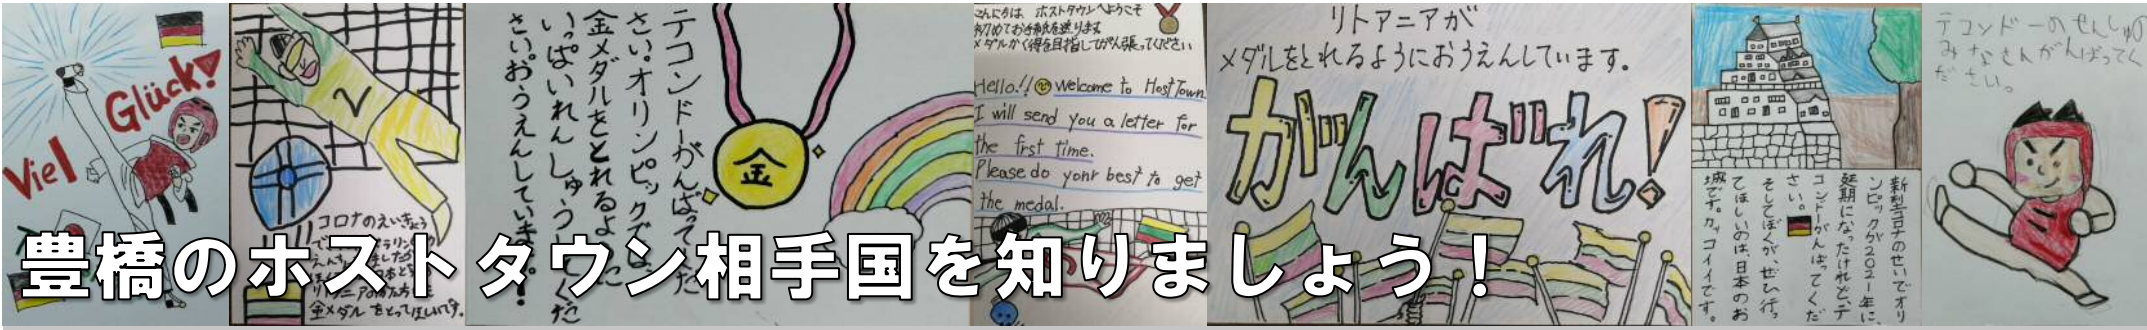 Viel
Glück!
2
コロナのえいきょう
金メダルをとってほしいです。
テコンドーがんばってくだ
さい。オリンピックでは、
金メダルをとれるように
いっぱいれんしゅうしてくだ
さい。おうえんしています。!
金
こんにちは ホストタウンへようこそ
初めてお手紙を送ります
メダルかく得を目指してがん張ってください
Hello!! Welcome to Host Town.
I will send you a letter for
the frst time.
Please do yonr best to get
the medal.
リトアニアが
メダルをとれるようにおうえんしています。
がんばれ!
新型コロナのせいでオリ
ンピックが2021年に、
延期になったけれど、テ
コンドーがんばってくだ
さい。
そしてぼくが、ぜひ行っ
てほしいのは、日本のお
城です。カッコイイです。
テコンドーのせんしゅの
みなさんがんばってく
ださい。
豊橋のホストタウン相手国を知りましょう！